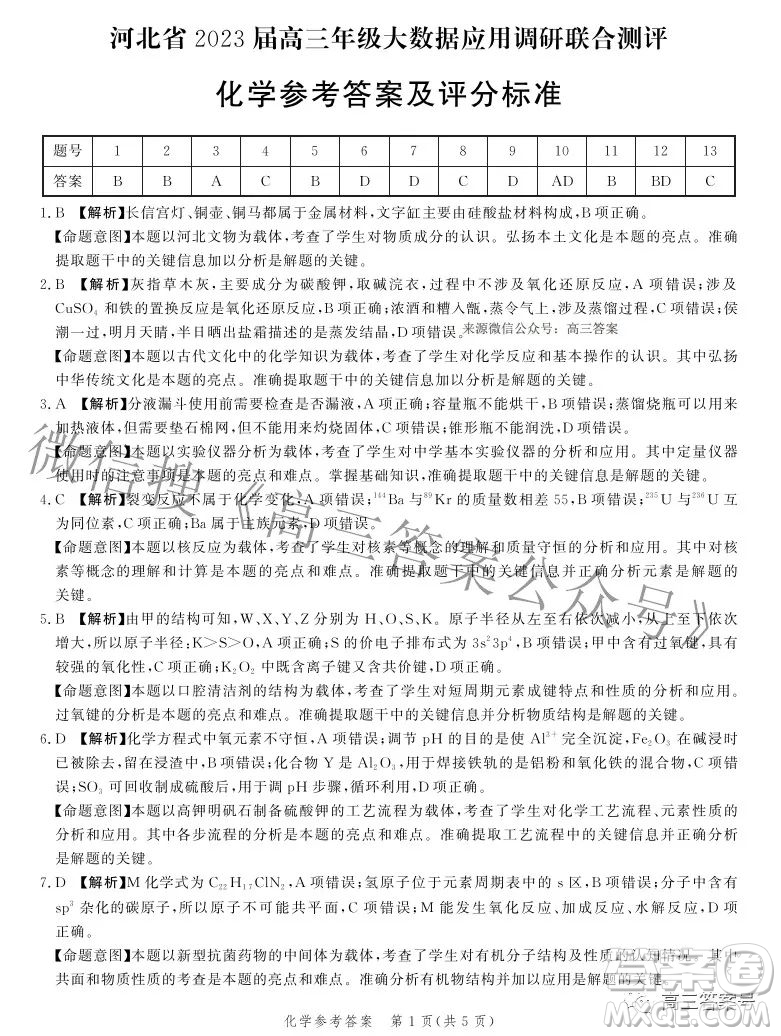 河北省 2023 届高三年级大数据应用调研联合测评
化学参考答案及评分标准
题号 1 2 3 4 5 6 7 8 9 10 11 12 13
答案 B B A C B D D C D AD B BD C
1. B 【解析】长信宫灯、铜壶、铜马都属于金属材料，文字缸主要由硅酸盐材料构成，B项正确。
【命题意图】本题以河北文物为载体，考查了学生对物质成分的认识。弘扬本土文化是本题的亮点。准确
提取题干中的关键信息加以分析是解题的关键。
2. B 【解析】灰指草木灰，主要成分为碳酸钾，取碱浣衣，过程中不涉及氧化还原反应，A项错误；涉及
CuSO₄ 和铁的置换反应是氧化还原反应，B项正确；浓酒和糟入甑，蒸令气上，涉及蒸馏过程，C项错误；侯
潮一过，明月天晴，半日晒出盐霜描述的是蒸发结晶，D项错误。来源微信公众号：高三答案
【命题意图】本题以古代文化中的化学知识为载体，考查了学生对化学反应和基本操作的认识。其中弘扬
中华传统文化是本题的亮点。准确提取题干中的关键信息加以分析是解题的关键。
3. A 【解析】分液漏斗使用前需要检查是否漏液，A项正确；容量瓶不能烘干，B项错误；蒸馏烧瓶可以用来
加热液体，但需要垫石棉网，但不能用来灼烧固体，C项错误；锥形瓶不能润洗，D项错误。
【命题意图】本题以实验仪器分析为载体，考查了学生对中学基本实验仪器的分析和应用。其中定量仪器
使用时的注意事项是本题的亮点和难点。掌握基础知识，准确提取题干中的关键信息是解题的关键。
4. C 【解析】裂变反应不属于化学变化，A项错误；¹⁴⁴Ba 与⁸⁹Kr 的质量数相差 55，B项错误；²³⁵U 与²³⁶U 互
为同位素，C项正确；Ba 属于主族元素，D项错误。
【命题意图】本题以核反应为载体，考查了学生对核素等概念的理解和质量守恒的分析和应用。其中对核
素等概念的理解和计算是本题的亮点和难点。准确提取题干中的关键信息并正确分析元素是解题的关
键。
5. B 【解析】由甲的结构可知，W、X、Y、Z 分别为 H、O、S、K。原子半径从左向右依次减小，从上至下依次
增大，所以原子半径：K＞S＞O，A项正确；S 的价电子排布式为 3s²3p⁴，B项错误；甲中含有过氧键，具有
较强的氧化性，C项正确；K₂O₂ 中既含离子键又含共价键，D项正确。
【命题意图】本题以口腔清洁剂的结构为载体，考查了学生对短周期元素成键特点和性质的分析和应用。
过氧键的分析是本题的亮点和难点。准确提取题干中的关键信息并正确分析物质结构是解题的关键。
6. D 【解析】化学方程式中氧元素不守恒，A项错误；调节 pH 的目的是使 Al³⁺ 完全沉淀，Fe₂O₃ 在碱浸时
已被除去，留在浸渣中，B项错误；化合物 Y 是 Al₂O₃，用于焊接铁轨的是铝粉和氧化铁的混合物，C项错
误；SO₃ 可回收制成硫酸后，用于调 pH 步骤，循环利用，D项正确。
【命题意图】本题以高钾明矾石制备硫酸钾的工艺流程为载体，考查了学生对化学工艺流程、元素性质的
分析和应用。其中各步流程的分析是本题的亮点和难点。准确提取工艺流程中的关键信息并正确分析
是解题的关键。
7. D 【解析】M 化学式为 C₂₂H₁₇ClN₂，A项错误；氢原子位于元素周期表中的 s 区，B项错误；分子中含有
sp³ 杂化的碳原子，所以原子不可能共平面，C项错误；M 能发生氧化反应、加成反应、水解反应，D项正
确。
【命题意图】本题以新型抗菌药物的中间体为载体，考查了学生对有机分子结构及性质的认知情况。其中
共面和物质性质的考查是本题的亮点和难点。准确分析有机物结构并加以应用是解题的关键。
化学参考答案 第 1 页(共 5 页)
微信搜《高三答案公众号》
答案圈
高三答案号